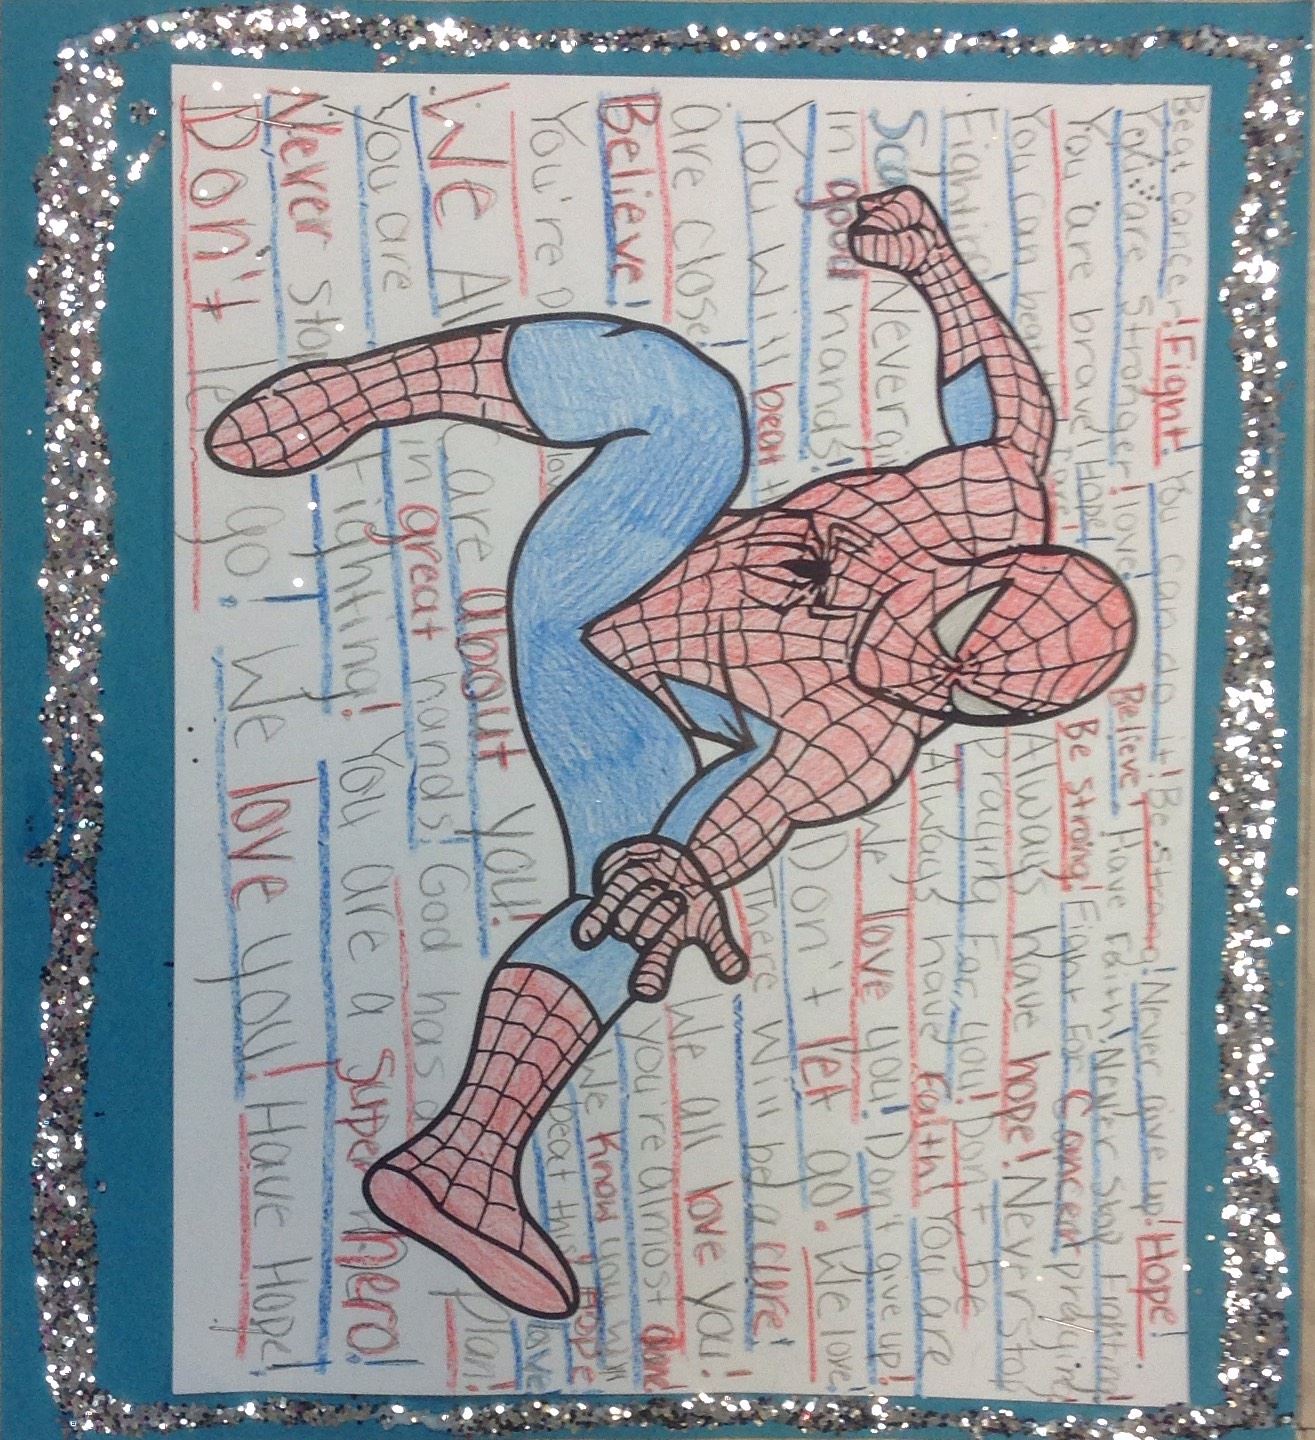 Beat cancer! Fight! You can do it! Be strong! Never give up! Hope!
You are stronger! love! Believe! Have Faith! Never stop Fighting!
You are brave! Hope! Be strong! Fight For Cancer! praying
You can beat Always have hope! Never stop
Fighting! Praying For you! Don't be
Always have Faith! You are
Never We love you! Don't give up!
in good hands! Don't let go! We love!
You will beat There will be a cure!
are close! We all love you!
Believe! you're almost done
You're We know you will
beat this Hope!
have
We All Care about you! plan!
You are in great hands! God has a
Never stop Fighting! You are a super hero!
Don't let go! We love you! Have Hope!